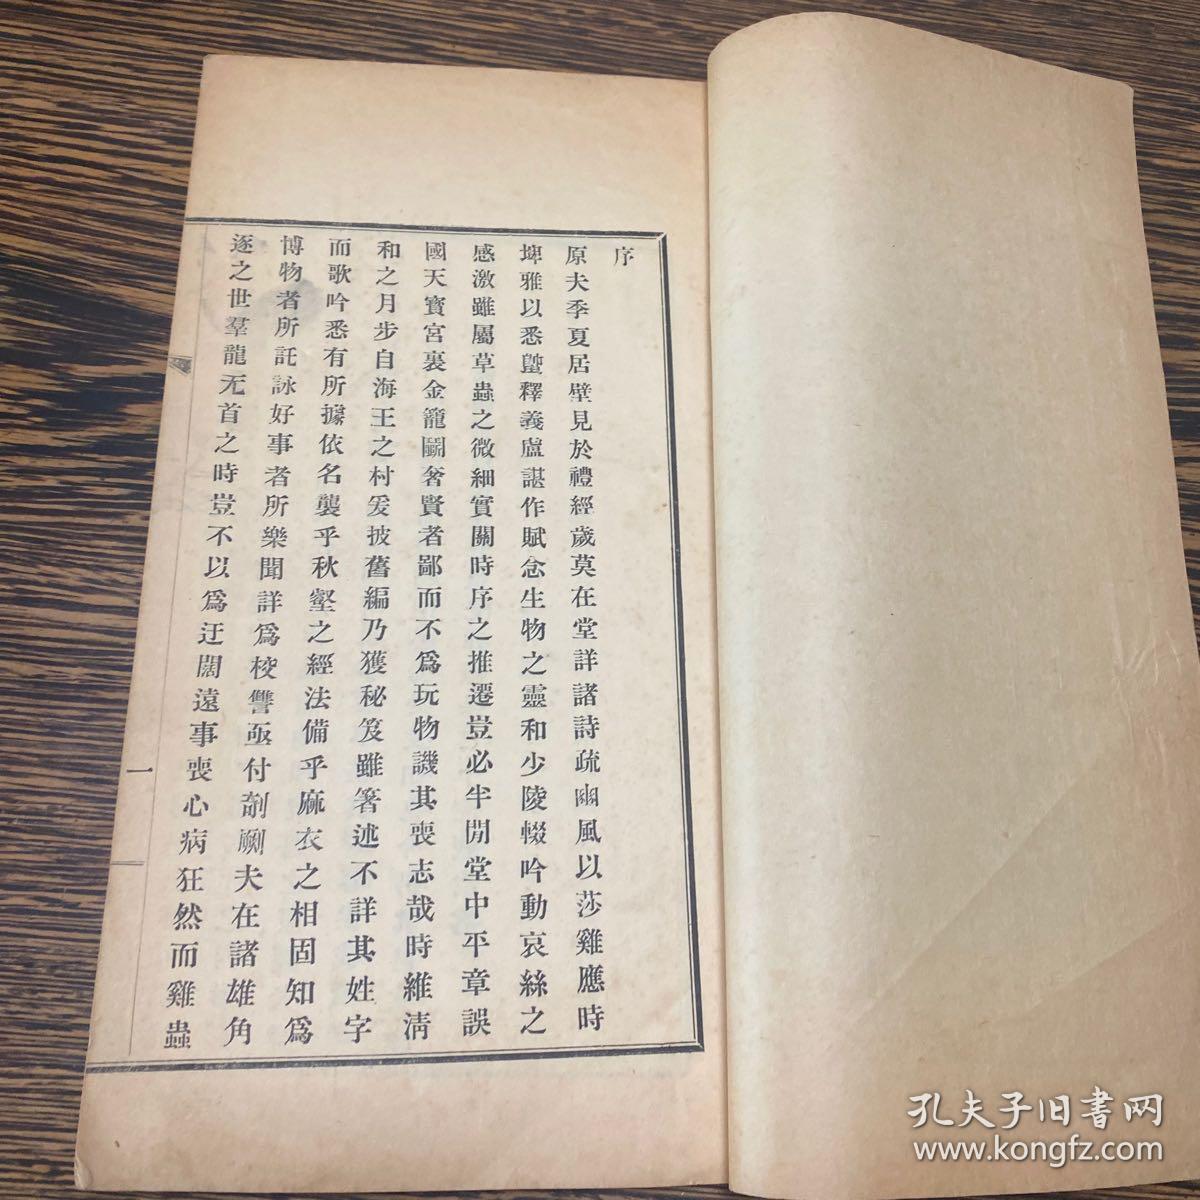 序
原夫季夏居壁見於禮經歲莫在堂詳諸詩疏豳風以莎雞應時
埤雅以悉蟿釋義盧諶作賦念生物之靈和少陵輟吟動哀絲之
感激雖屬草蟲之微細實關時序之推遷豈必半閒堂中平章誤
國天寶宮裏金籠鬭奢賢者鄙而不爲玩物譏其喪志哉時維淸
和之月步自海王之村爰披舊編乃獲秘笈雖箸述不詳其姓字
而歌吟悉有所據依名襲乎秋壑之經法備乎麻衣之相固知爲
博物者所託詠好事者所樂聞詳爲校讐亟付剞劂夫在諸雄角
逐之世羣龍无首之時豈不以爲迂闊遠事喪心病狂然而雞蟲
一
孔夫子旧书网
www.kongfz.com